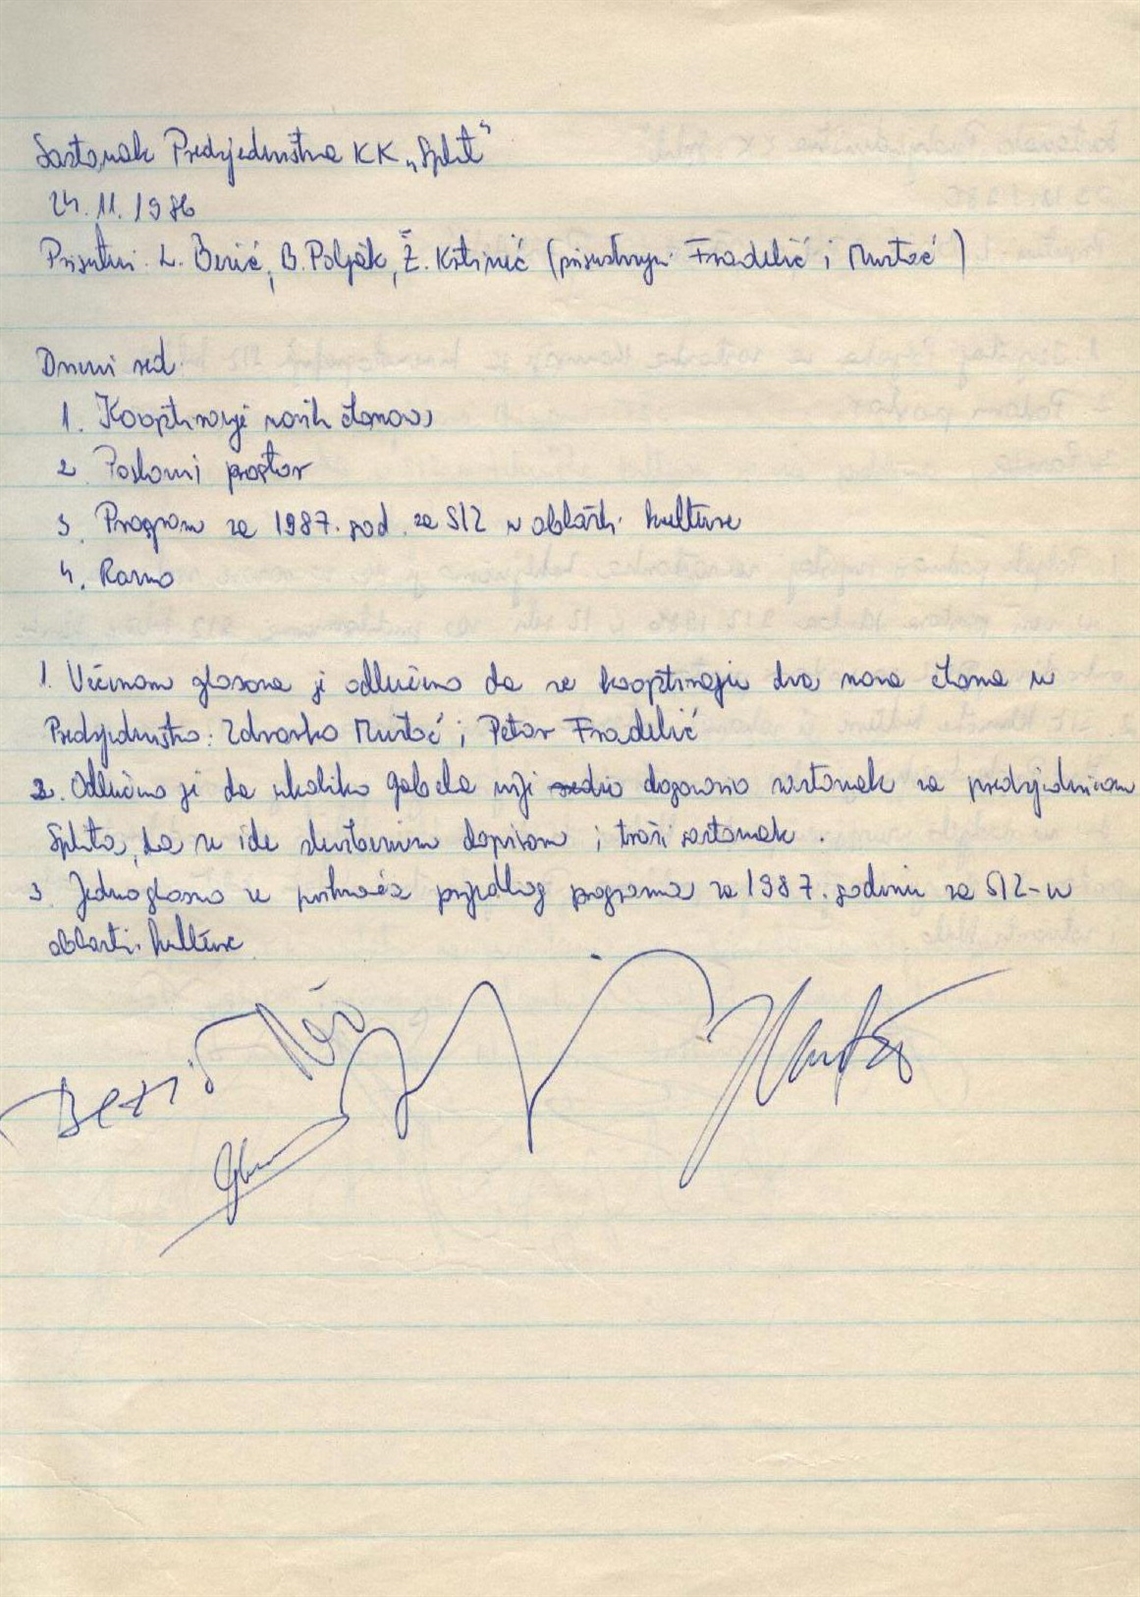 Sastanak Predsjedništva KK „Split"
24. 11. 1986
Prisutni: L. Berić, B. Poljak, Ž. Krstinić (prisustvuju Fradelić i Murtić)
Dnevni red:
1. Kooptiranje novih članova
2. Poslovni prostor
3. Program za 1987. god. za SIZ u oblasti kulture
4. Razno
1. Većinom glasova je odlučeno da se kooptiraju dva nova člana u
Predsjedništvo: Zdravko i Petar Fradelić
2. Odlučeno je da ukoliko nije dogovorio sastanak sa predsjednicom
Splita, da se ide službenim dopisom i traži sastanak.
3. Jednoglasno se prihvaća prijedlog programa za 1987. godinu za SIZ-u
oblasti kulture